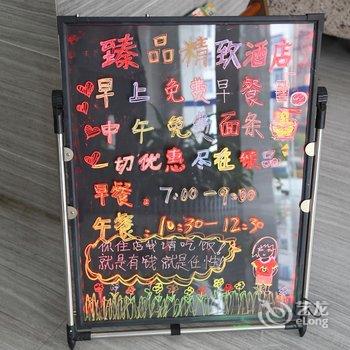 臻品精致酒店
早上免费早餐
中午免费面条
一切优惠尽在臻品
早餐：7:00-9:50
午餐：10:30-12:30
你住店我请吃饭
就是有钱就是任性
艺龙
eLong